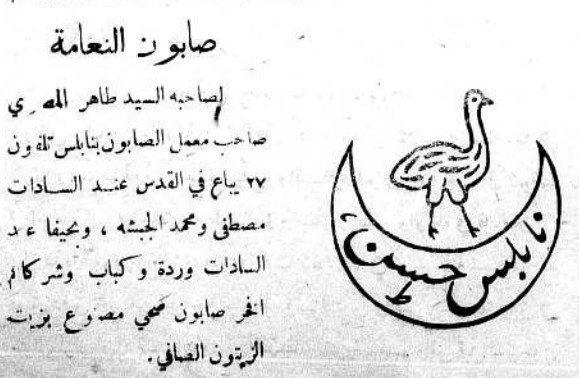 صابون النعامة
لصاحبه السيد طاهر المصري
صاحب معمل الصابون بنابلس تلفون
٢٧ يباع في القدس عند السادات
مصطفى ومحمد الحبشه ، وبحيفا عند
السادات وردة وكباب وشركاهم
افخر صابون صحي مصنوع بزيت
الزيتون الصافي .
نابلس حسن